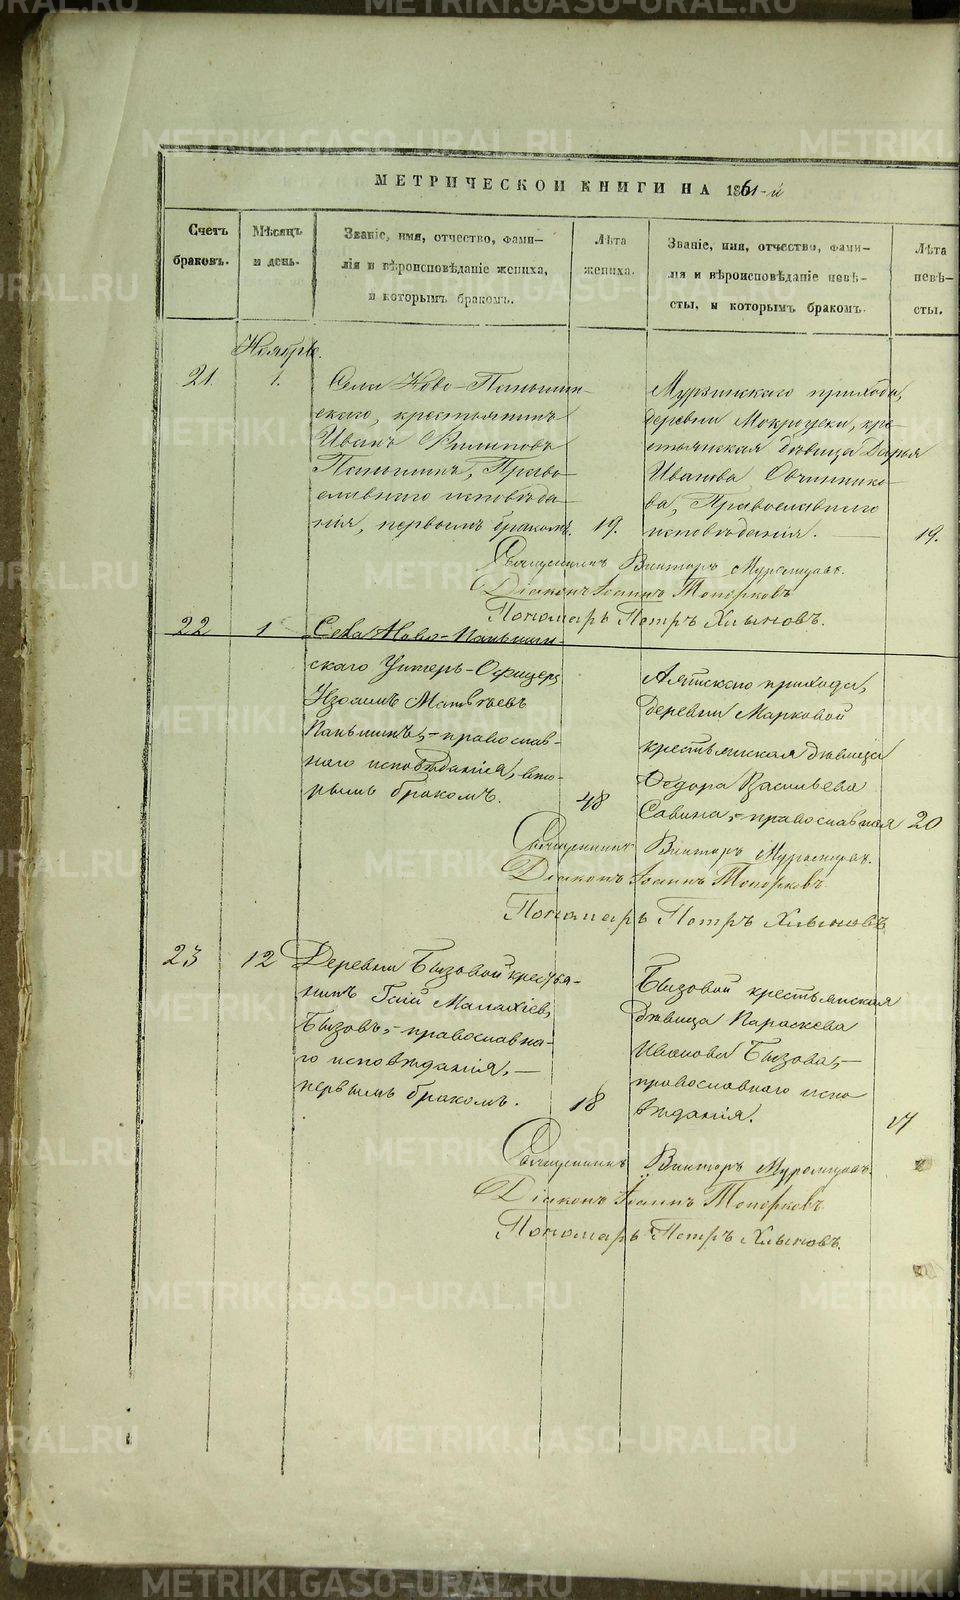 МЕТРИЧЕСКОЙ КНИГИ НА 1861-й
Счетъ браковъ.
Мѣсяцъ и день.
Званіе, имя, отчество, фами-
лія и вѣроисповѣданіе жениха,
и которымъ бракомъ.
Лѣта жениха.
Званіе, имя, отчество, фами-
лія и вѣроисповѣданіе невѣ-
сты, и которымъ бракомъ.
Лѣта невѣ-
сты.
Ноябрь.
21. 1.
Села Ново-Паньшин-
скаго, крестьянинъ
Иванъ Филиповъ
Паньшинъ, Право-
славнаго исповѣда-
нія, первымъ бракомъ. 19.
Мурзинскаго прихода,
деревни Мокроуски, кре-
стьянская дѣвица Дарья
Иванова Овчиннико-
ва, Православнаго
исповѣданія. 19.
Священникъ Викторъ
Діаконъ Іоаннъ Топорковъ
Пономарь Петръ Хлыновъ.
22 1
Села Ново-Паньшин-
скаго Унтеръ-Офицеръ
Матвѣевъ
Паньшинъ, православ-
наго исповѣданія, вто-
рымъ бракомъ. 48
Аятскаго прихода,
деревни Марковой
крестьянская дѣвица
Ѳедора Васильева
Савина, православная 20
Священникъ Викторъ
Діаконъ Іоаннъ Топорковъ
Пономарь Петръ Хлыновъ
23 12
Деревни Бызовой кресть-
нинъ Гаій Малахіевъ
Бызовъ, православна-
го исповѣданія,
первымъ бракомъ. 18
Бызовой крестьянская
дѣвица Параскева
Иванова Бызова,
православнаго испо
вѣданія. 17
Священникъ Викторъ
Діаконъ Іоаннъ Топорковъ
Пономарь Петръ Хлыновъ.
METRIKI.GASO-URAL.RU